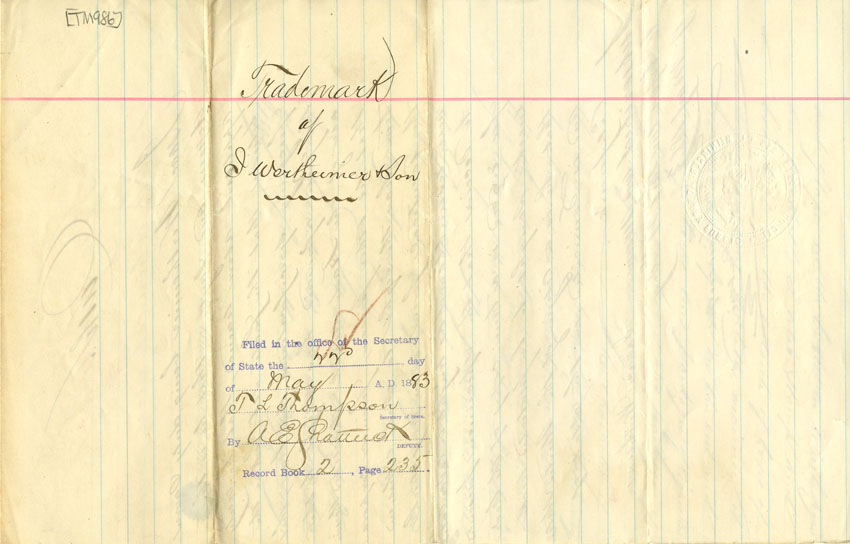 [TM986]
Trademark
of
I Wertheimer & Son
Filed in the office of the Secretary
of State the 22d day
of May A. D. 1883
T L Thompson
Secretary of State.
By A E
DEPUTY.
Record Book 2, Page 235.